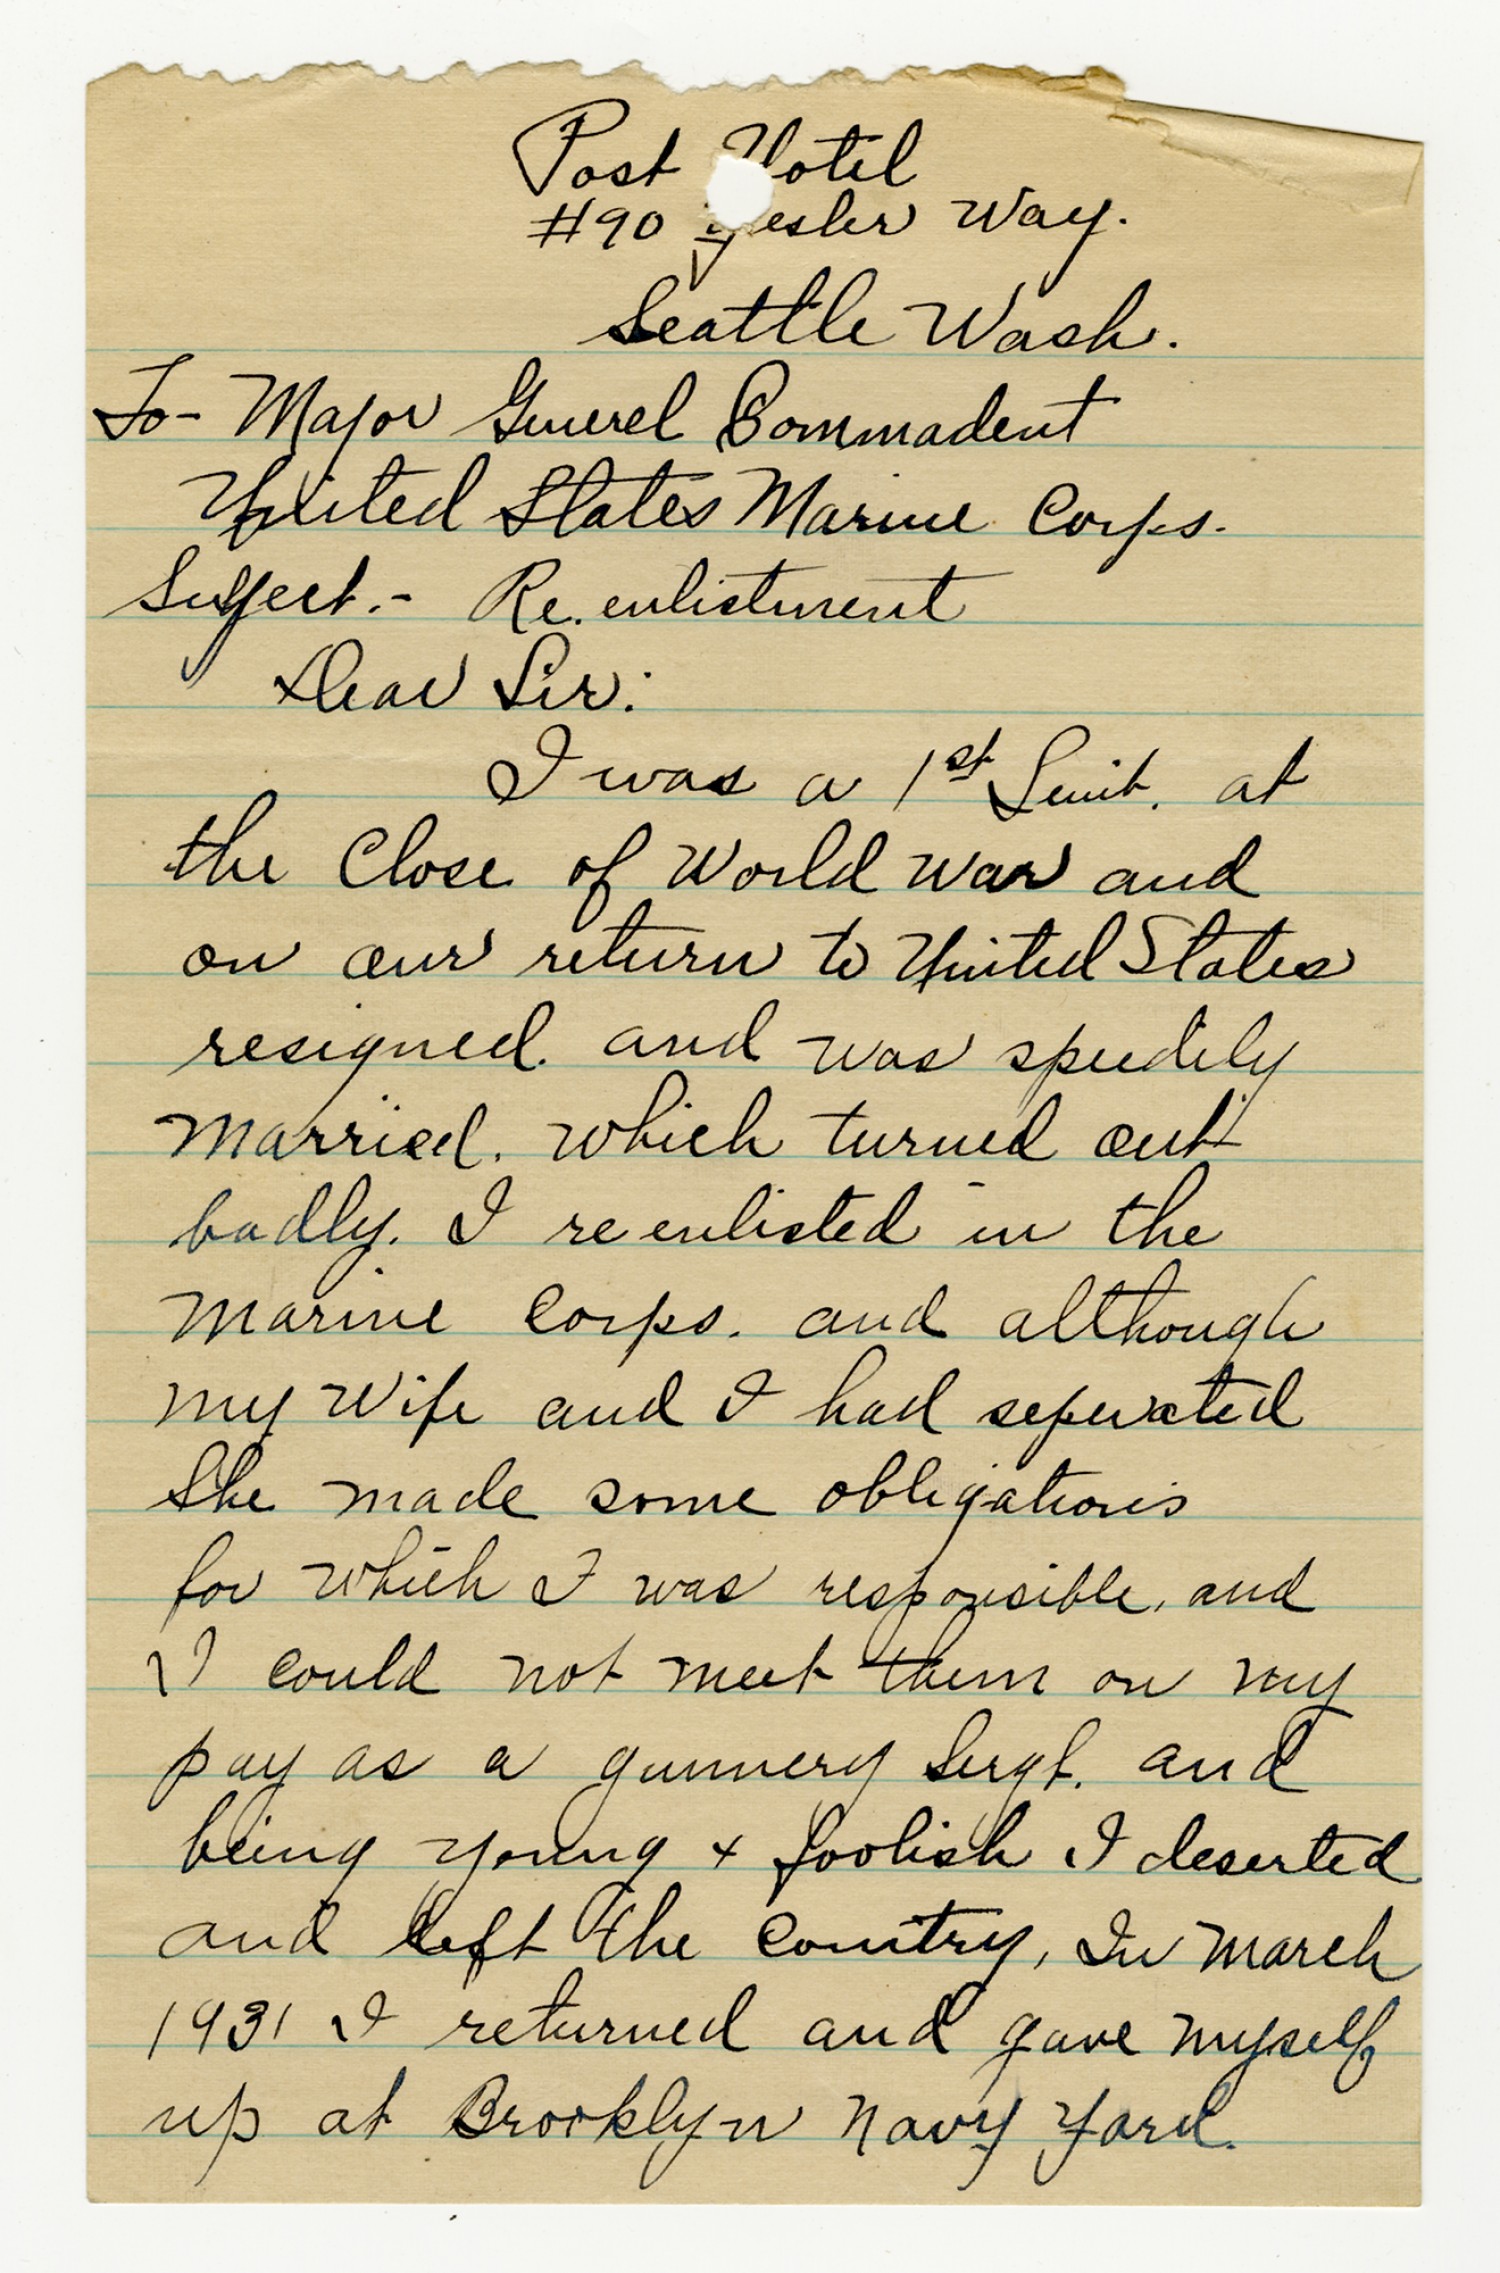 Post Hotel
#90 Yesler Way.
Seattle Wash.
To- Major Generel Commadent
United States Marine Corps.
Subject.- Re.enlistment
Dear Sir:
I was a 1st Leuit. at
the Close of World War and
on our return to United States
resigned. and was speedily
married. which turned out
badly. I reenlisted in the
Marine Corps. and although
my Wife and I had seperated
She made some obligations
for which I was responsible, and
I could not meet them on my
pay as a gunnery Sergt. and
being young + foolish I deserted
and left the Country, In March
1931 I returned and gave myself
up at Brooklyn Navy Yard.